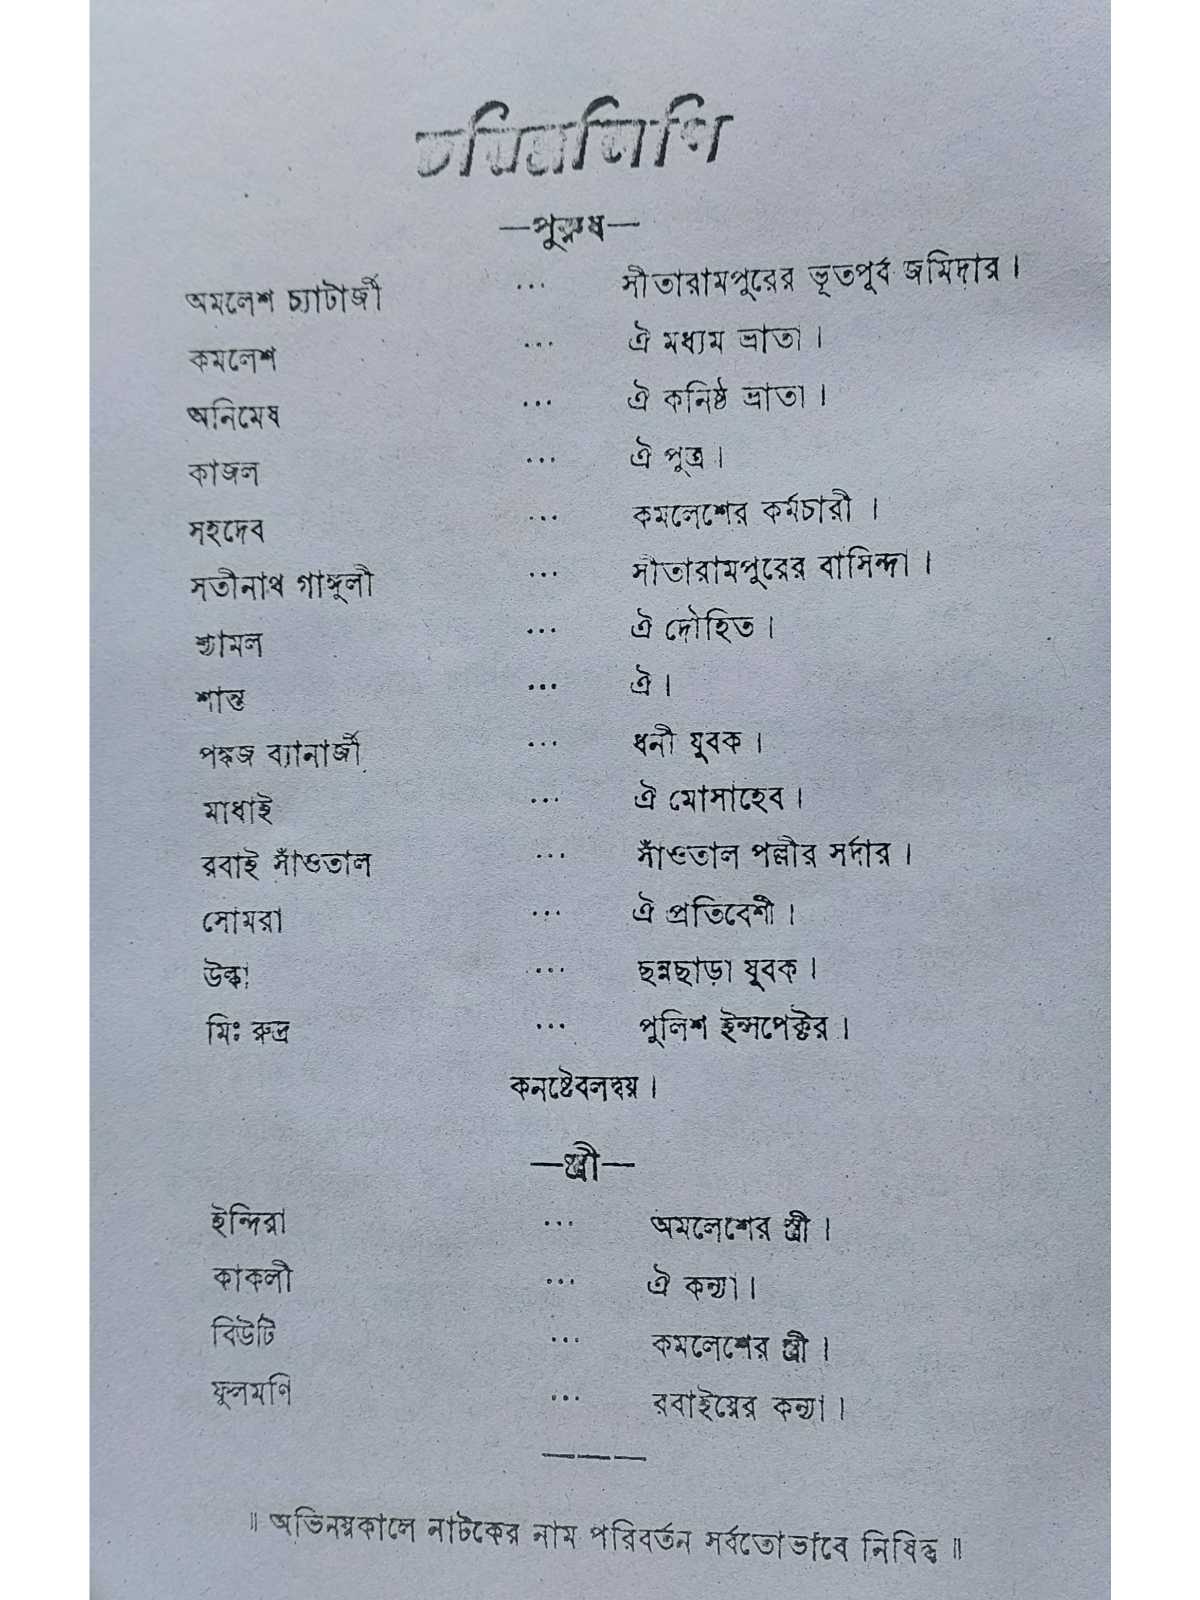 চরিত্রলিপি
—পুরুষ—
অমলেশ চ্যাটার্জী ... সীতারামপুরের ভূতপূর্ব জমিদার ।
কমলেশ ... ঐ মধ্যম ভ্রাতা ।
অনিমেষ ... ঐ কনিষ্ঠ ভ্রাতা ।
কাজল ... ঐ পুত্র ।
সহদেব ... কমলেশের কর্মচারী ।
সতীনাথ গাঙ্গুলী ... সীতারামপুরের বাসিন্দা ।
শ্যামল ... ঐ দৌহিত ।
শান্ত ... ঐ ।
পঙ্কজ ব্যানার্জী ... ধনী যুবক ।
মাধাই ... ঐ মোসাহেব ।
রবাই সাঁওতাল ... সাঁওতাল পল্লীর সর্দার ।
সোমরা ... ঐ প্রতিবেশী ।
উল্কা ... ছন্নছাড়া যুবক ।
মিঃ রুদ্র ... পুলিশ ইন্সপেক্টর ।
কনষ্টেবলদ্বয় ।
—স্ত্রী—
ইন্দিরা ... অমলেশের স্ত্রী ।
কাকলী ... ঐ কন্যা ।
বিউটি ... কমলেশের স্ত্রী ।
ফুলমণি ... রবাইয়ের কন্যা ।
॥ অভিনয়কালে নাটকের নাম পরিবর্তন সর্বতোভাবে নিষিদ্ধ ॥